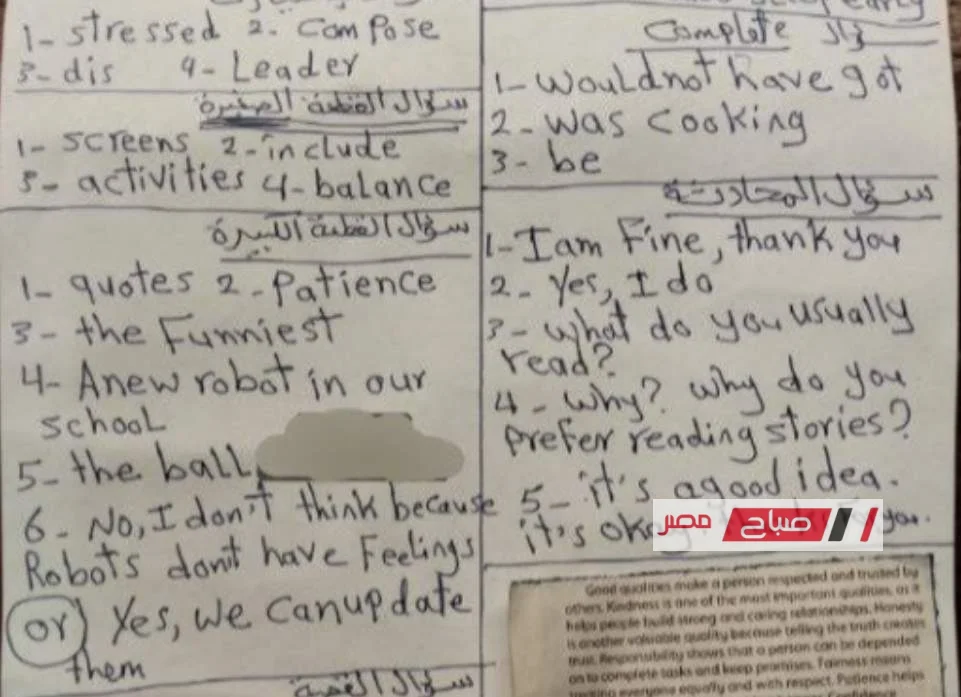 1- stressed 2- compose
3- dis 4- Leader
سؤال القطعة الصغيرة
1- screens 2- include
3- activities 4- balance
سؤال القطعة الكبيرة
1- quotes 2- Patience
3- the Funniest
4- A new robot in our
school
5- the ball
6- No, I don't think because
Robots don't have Feelings
or Yes, we can update
them
سؤال القصة
early
سؤال Complete
1- wouldnot have got
2- was cooking
3- be
سؤال المحادثة
1- I am Fine, thank you
2- Yes, I do
3- what do you usually
read?
4- why? why do you
prefer reading stories?
5- it's a good idea.
it's okay you.
صباح مصر
Good qualities make a person respected and trusted by
others. Kindness is one of the most important qualities, as it
helps people build strong and caring relationships. Honesty
is another valuable quality because telling the truth creates
trust. Responsibility shows that a person can be depended
on to complete tasks and keep promises. Fairness means
treating everyone equally and with respect. Patience helps